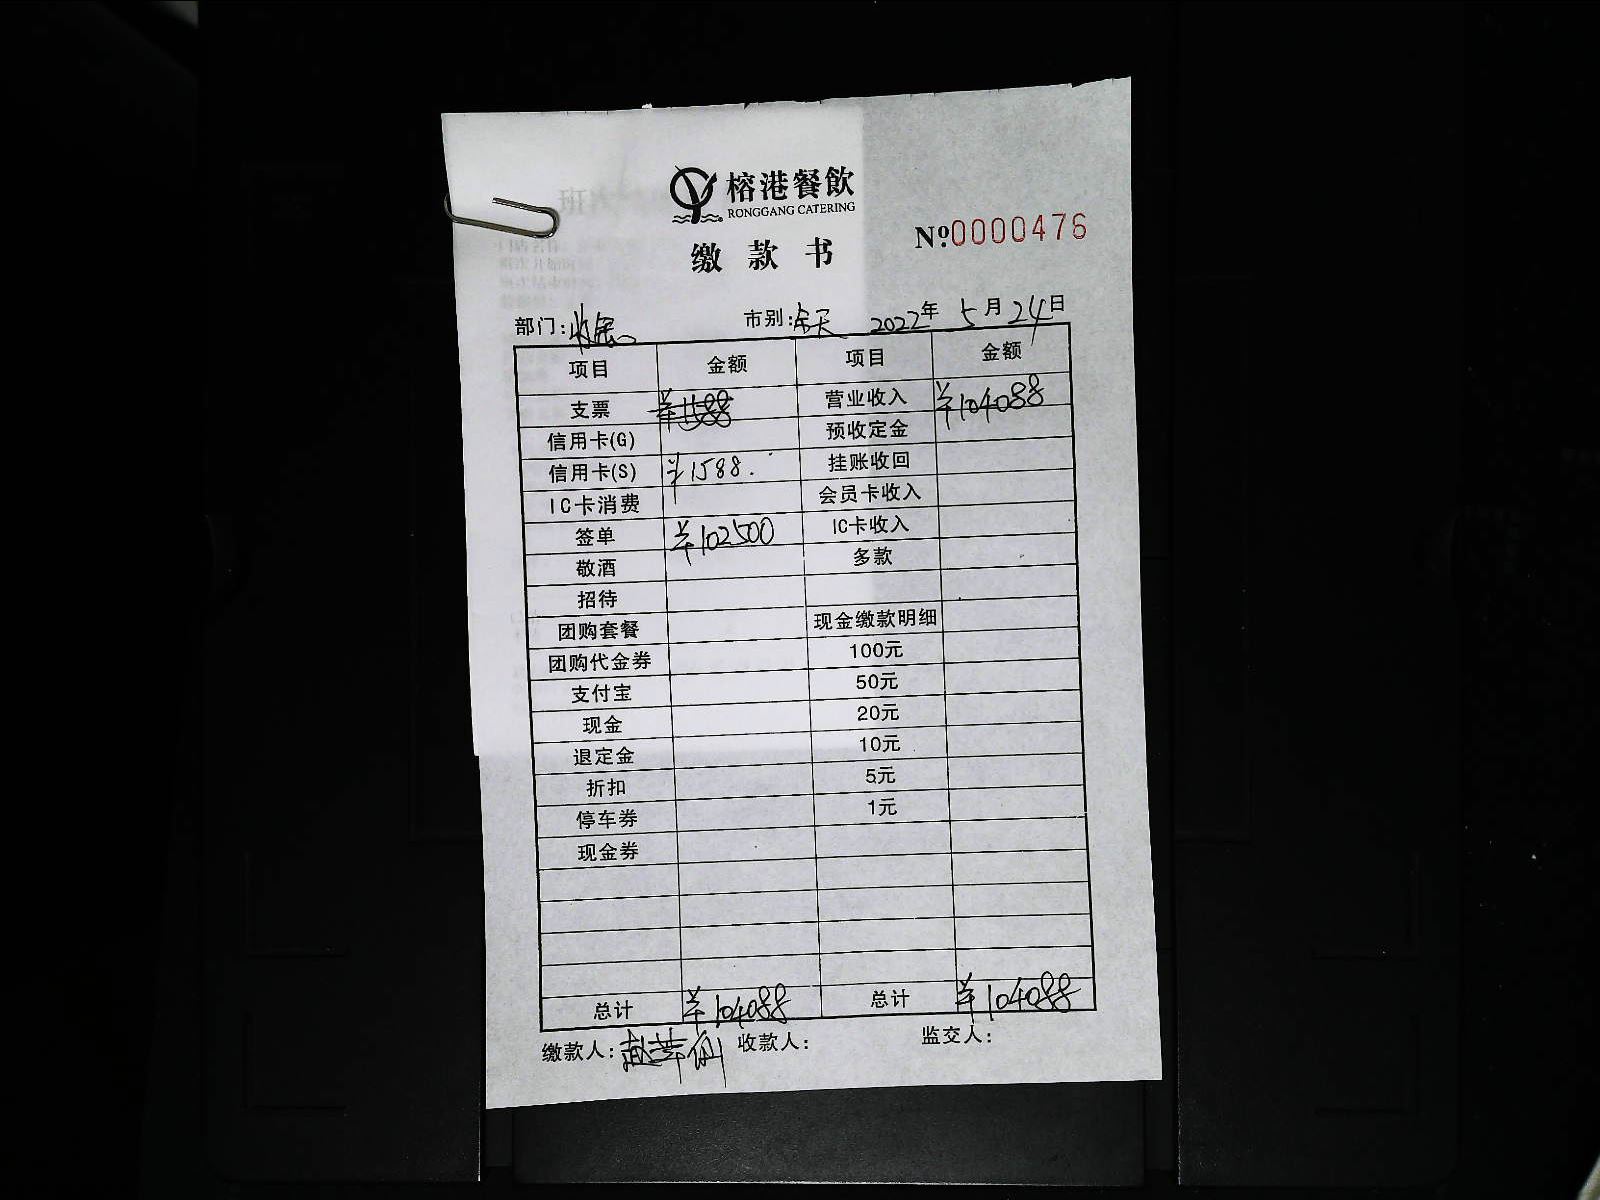 榕港餐飲
RONGGANG CATERING
缴款书
№0000476
部门: 市别:全天 2022年5月24日
项目 金额 项目 金额
支票 营业收入 ¥104088
信用卡(G) 预收定金
信用卡(S) ¥1588. 挂账收回
IC卡消费 会员卡收入
签单 ¥102500 IC卡收入
敬酒 多款
招待
团购套餐 现金缴款明细
团购代金券 100元
支付宝 50元
现金 20元
退定金 10元
折扣 5元
停车券 1元
现金券
总计 ¥104088 总计 ¥104088
缴款人: 收款人: 监交人: